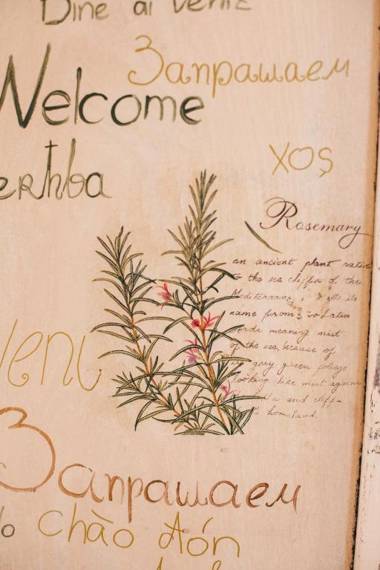 Dine ai veniz
Запрашаем
Welcome
xoş
Rosemary
an ancient plant native
to the sea cliffs of the
Mediterranean, its
name from Latin
words meaning mist
of the sea, because of
grey green foliage
looking like mist against
and cliffs
homeland.
veni
Запрашаем
chào đón